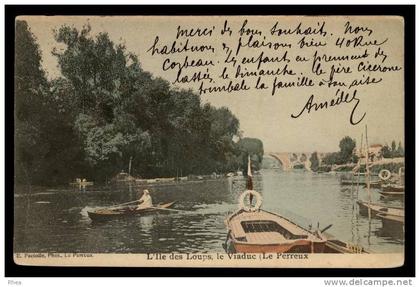 Merci des bons souhait. Nous
habitons, y plaisons bien 40 Rue
Corbeau. Les enfant en prennent des
lattés le dimanche. le père Cicerone
trimbale la famille à son aise
Amédée
E. Faciolle, Phot., Le Perreux
L'Ile des Loups, le Viaduc (Le Perreux
http://www.delcampe.net